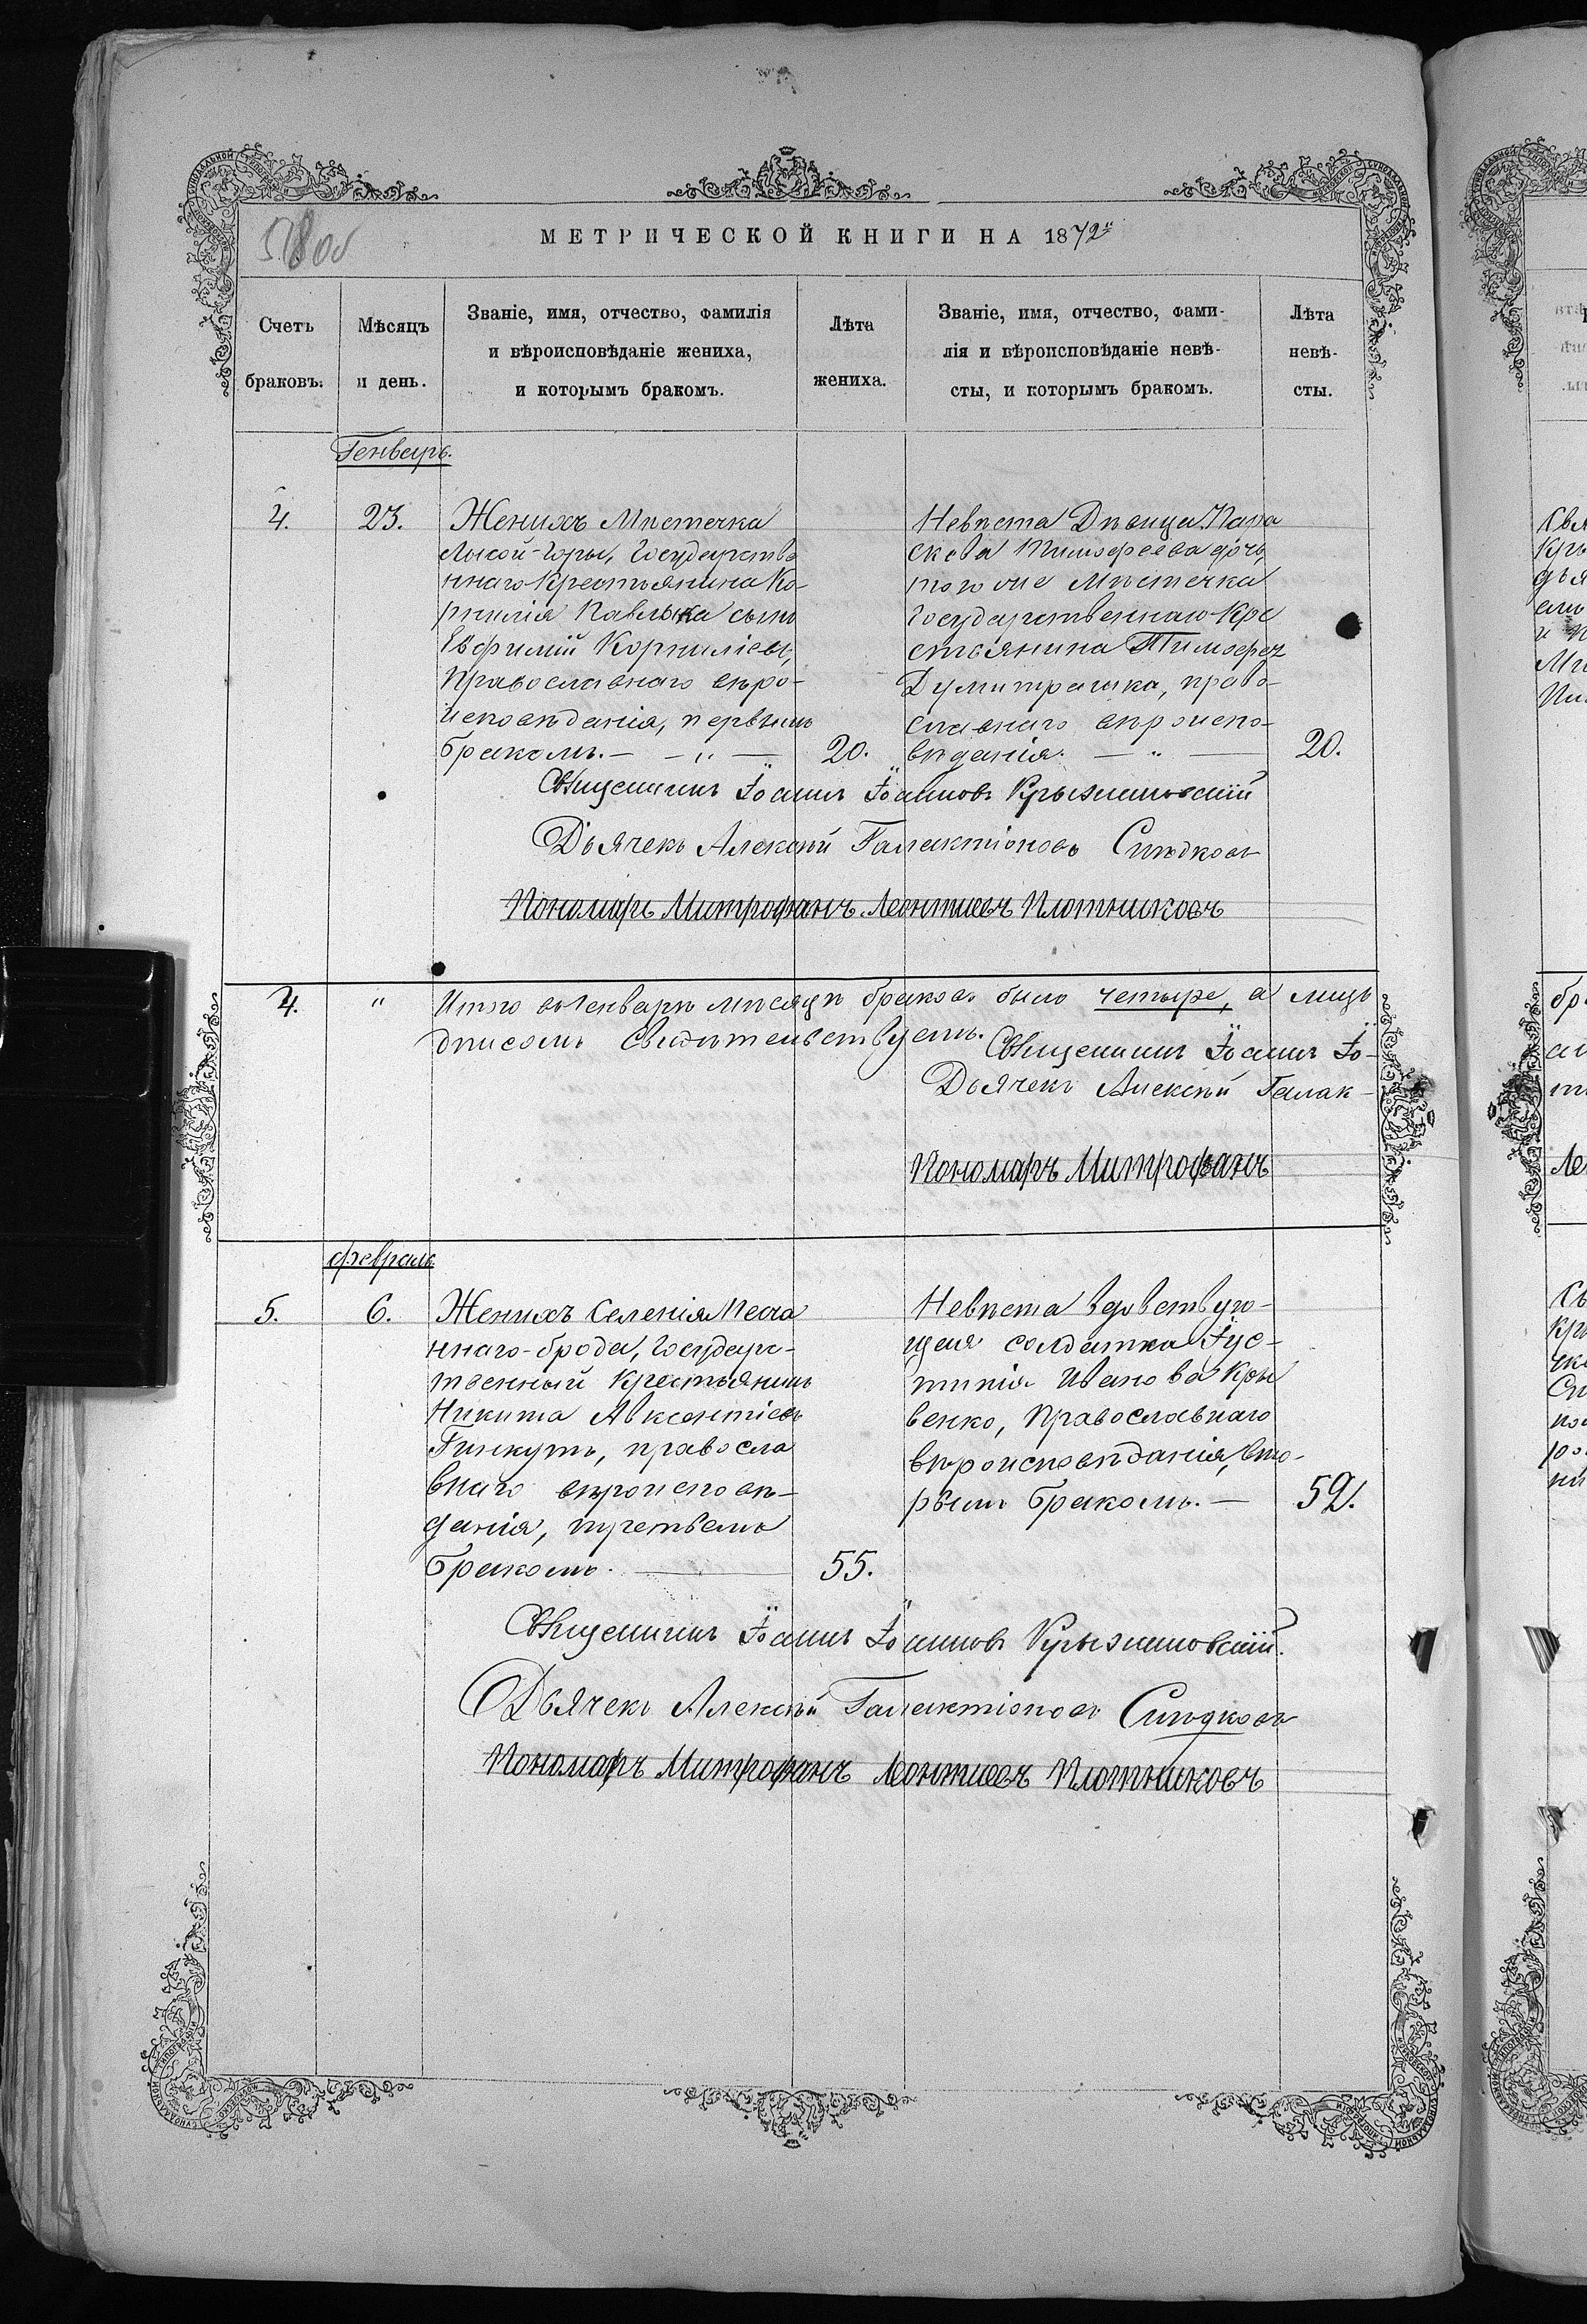 МЕТРИЧЕСКОЙ КНИГИ НА 1872й
Счетъ браковъ.
Мѣсяцъ и день.
Званіе, имя, отчество, фамилія
и вѣроисповѣданіе жениха,
и которымъ бракомъ.
Лѣта
жениха.
Званіе, имя, отчество, фами-
лія и вѣроисповѣданіе невѣ-
сты, и которымъ бракомъ.
Лѣта
невѣ-
сты.
Генварь.
4.
23.
Женихъ Мѣстечка
Лысой-Горы, Государстве
ннаго Крестьянина Ко-
рнилія Павлыка сынъ
Евфимій Корниліевъ,
Православнаго вѣро-
исповѣданія, первымъ
бракомъ. — „ —
20.
Невѣста Дѣвица Пара
скева Тимофеева дочь,
того же Мѣстечка
Государственнаго Кре
стьянина Тимофея
Думитрашка, право-
славнаго вѣроиспо-
вѣданія. — „ —
20.
Священникъ Іоаннъ Іоанновъ Крыжановскій
Дьячекъ Алексѣй Галактіоновъ Слѣдковъ
Пономарь Митрофанъ Леонтиевъ Плотниковъ
4.
„
Итого въ Генварѣ мѣсяцѣ браковъ было четыре, а лицъ
дписомъ Свидѣтельствуемъ.
Священникъ Іоаннъ Іо-
Дьячекъ Алексѣй Галак-
Пономаръ Митрофанъ
Февраль
5.
6.
Женихъ Селенія Песча
ннаго-брода, Государс-
твенный Крестьянинъ
Никита Авксентіевъ
православ
внаго вѣроисповѣ-
данія, третьемъ
бракомъ. —
55.
Невѣста вдовствую-
щая солдатка Іус-
тинія Иванова Кры
венко, Православнаго
вѣроисповѣданія, вто-
рымъ бракомъ. —
52.
Священникъ Іоаннъ Іоанновъ Крыжановскій.
Дьячекъ Алексѣй Галактіоновъ Слѣдковъ
Пономаръ Митрофанъ Леонтиевъ Плотниковъ